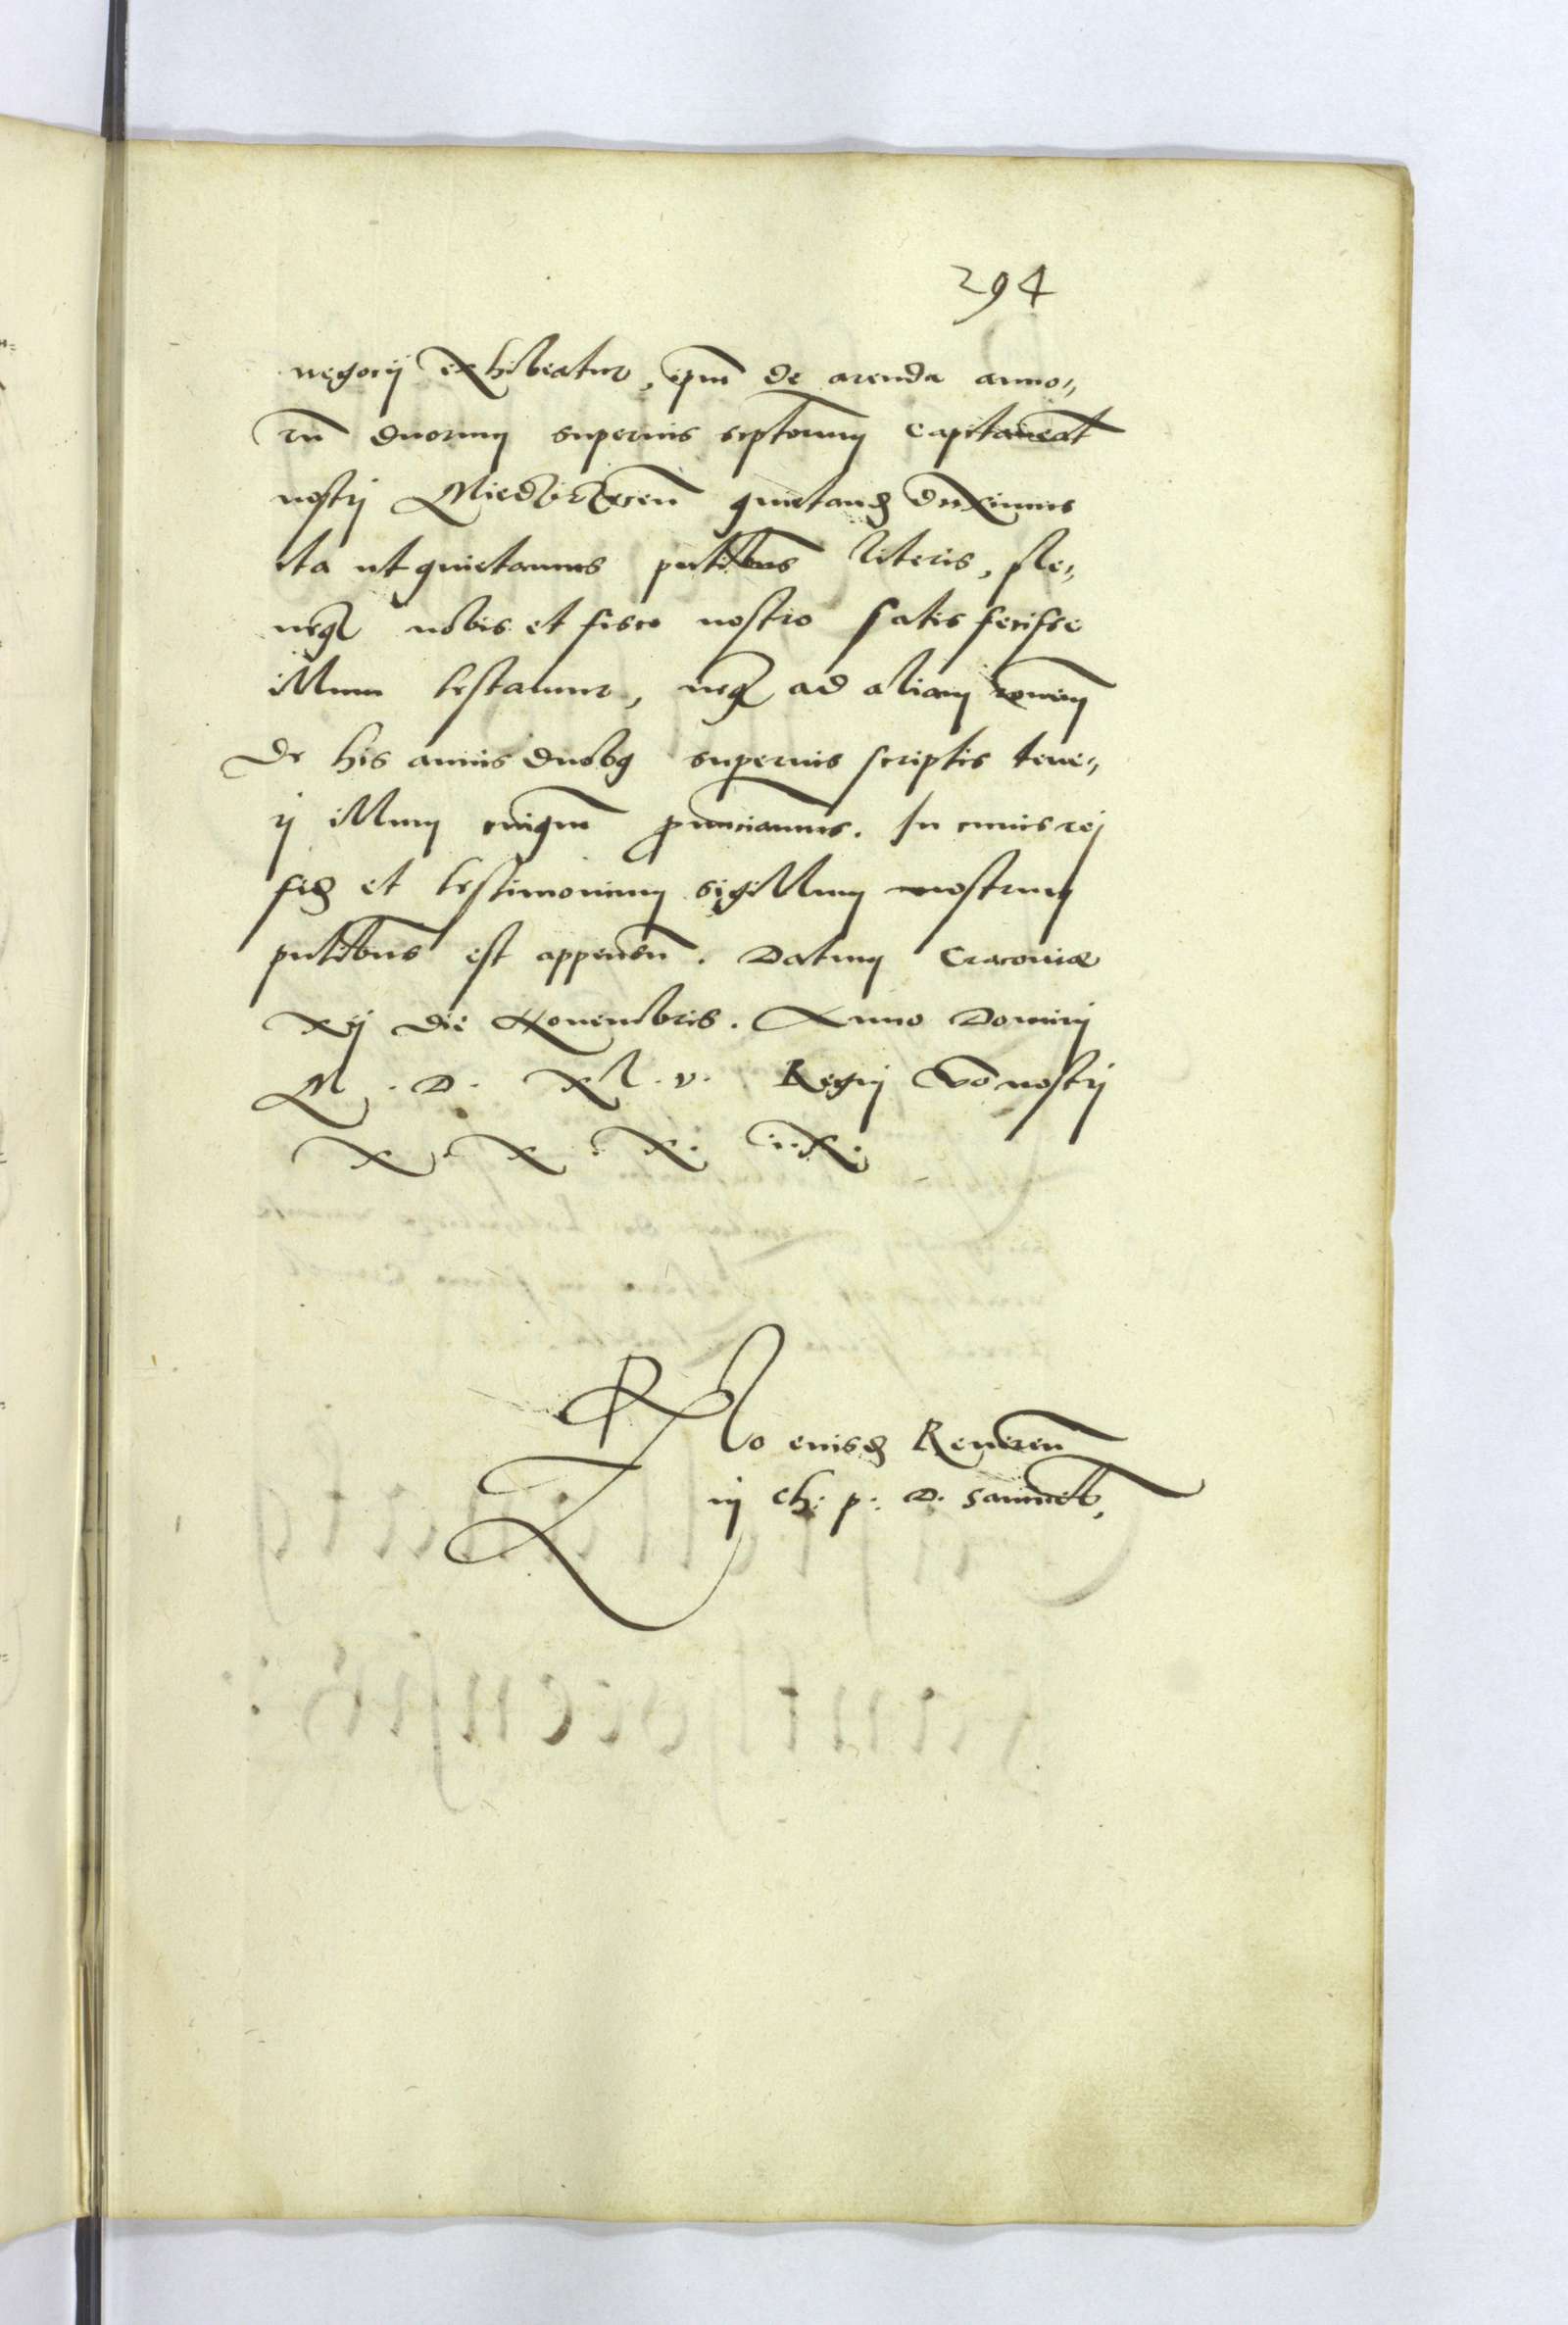 294
negocij exhibeatur, ipm de arenda anno„
rū duorum superius sptorum Capitaneat
nostrj Miedzirzecen quietand duximus
ita ut quietamus pntibus literis, ple„
neq nobis et fisco nostro satis fecisse
illum testamur, neq ad aliam ronem
de his annis duobq superius scriptis tene„
rj illum cuiqm pnunciamus. In cuius rej
fid et testimonium sigillum nostrum
pntibus est appensu. Datum Cracoviæ
xij die Novembris. Anno Dominj
M. D. XL. v. Regnj vo nostrj
X X X. IX.
Rlo eiusd Reveren
in ch: p: D. Samuel